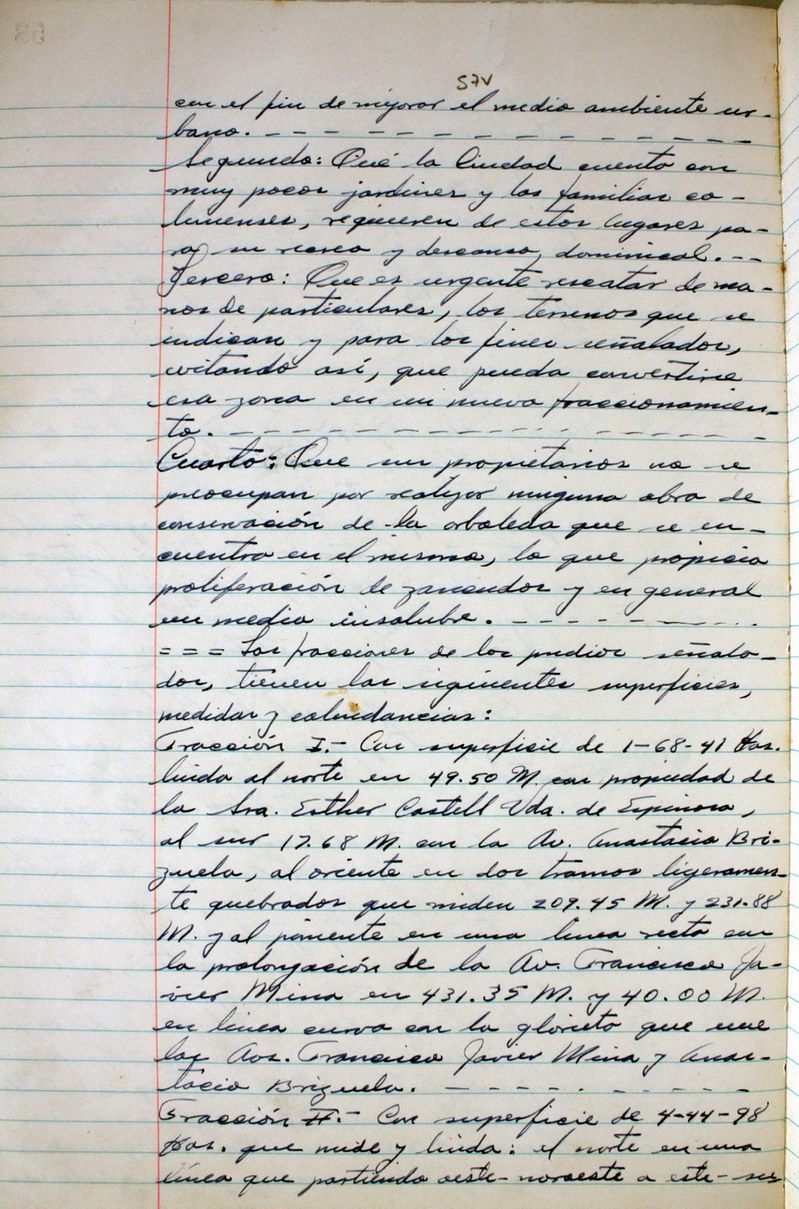 57V
con el fin de mejorar el medio ambiente ur-
bano. - - - - - - - - - - - - - - - -
Segundo: Qué la Ciudad cuenta con
muy pocos jardines y las familias co-
limenses, requieren de estos lugares pa-
ra su recreo y descanso, dominical. - -
Tercero: Que es urgente rescatar de ma-
nos de particulares, los terrenos que se
indican y para los fines señalados,
evitando así, que pueda convertirse
esa zona en un nuevo fraccionamien-
to. - - - - - - - - - - - - - - - -
Cuarto: Que sus propietarios no se
preocupan por realizar ninguna obra de
conservación de la arboleda que se en-
cuentra en el mismo, lo que propicia
proliferación de zancudos y en general
un medio insalubre. - - - - - - - - -
= = = Las fracciones de los predios señala-
dos, tienen las siguientes superficies,
medidas y colindancias:
Fracción I.- Con superficie de 1-68-41 Has.
linda al norte en 49.50 M. con propiedad de
la Sra. Esther Castell Vda. de Espinosa,
al sur 17.68 M. con la Av. Anastacio Bri-
zuela, al oriente en dos tramos ligeramen-
te quebrados que miden 209.45 M. y 231.88
M. y al poniente en una línea recta con
la prolongación de la Av. Francisco Ja-
vier Mina en 431.35 M. y 40.00 M.
en línea curva con la glorieta que une
las Avs. Francisco Javier Mina y Anas-
tacio Brizuela. - - - - - - - - -
Fracción II.- Con superficie de 4-44-98
Has. que mide y linda: el norte en una
línea que partiendo oeste-noroeste a este-sur